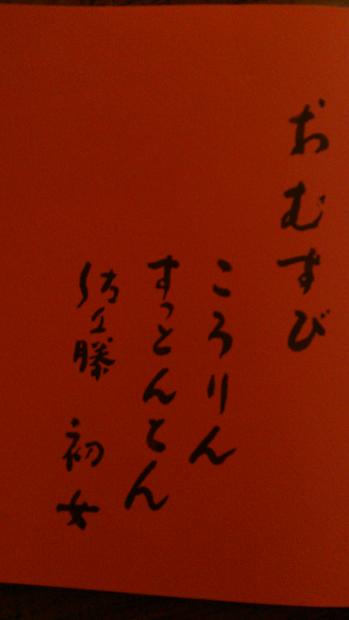 おむすび
ころりん
すっとんとん
佐藤 初女